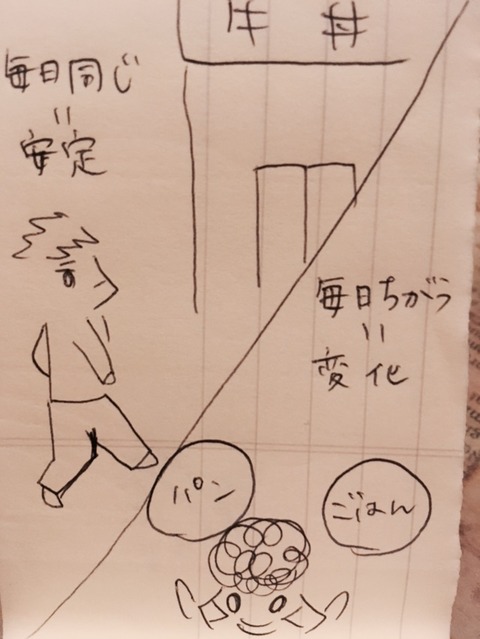 牛丼
毎日同じ
=
安定
毎日ちがう
=
変化
パン
ごはん